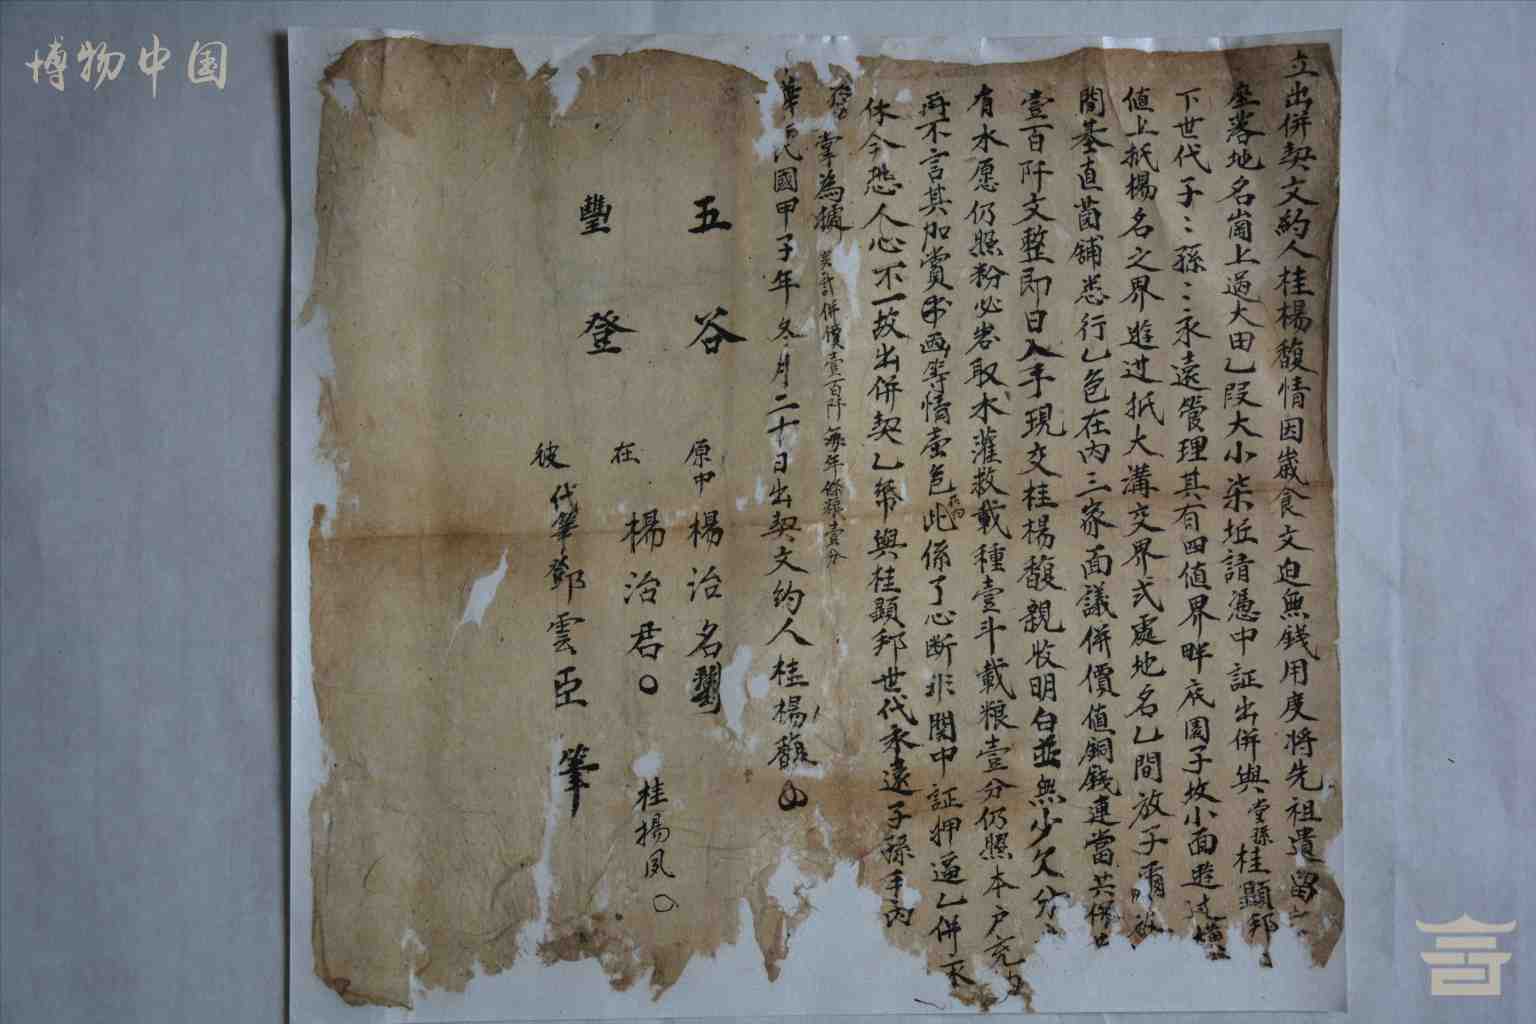 博物中国
立出併契文約人桂楊馥情因歲食文迫無錢用度將先祖遺留
座落地名崗上過大田乙段大小柒坵請憑中証出併與堂孫桂顯邦
下世代子〻孫〻永遠管理其有四值界畔底園子坎小面
值上抵楊名之界進抵大溝交界弍處地名乙間放子
間基直茴舖悉行乙色在內三家面議併價值銅錢連當共併
壹百阡文整即日入手現交桂楊馥親收明白並無少欠分
有水愿仍照粉必岩取水灌救載種壹斗載粮壹分仍照本戶充
再不言其加賞画等情壹色在內此係了心断非関中証押逼乙併永
休今恐人心不一故出併契乙帋與桂顯邦世代永遠子孫手內
掌為據 共計併價壹百阡 每年條粮壹分
華民國甲子年冬月二十日出契文約人桂楊馥
五谷
豐登
原中楊治名
在楊治君
桂楊凤
彼代筆鄧雲臣筆